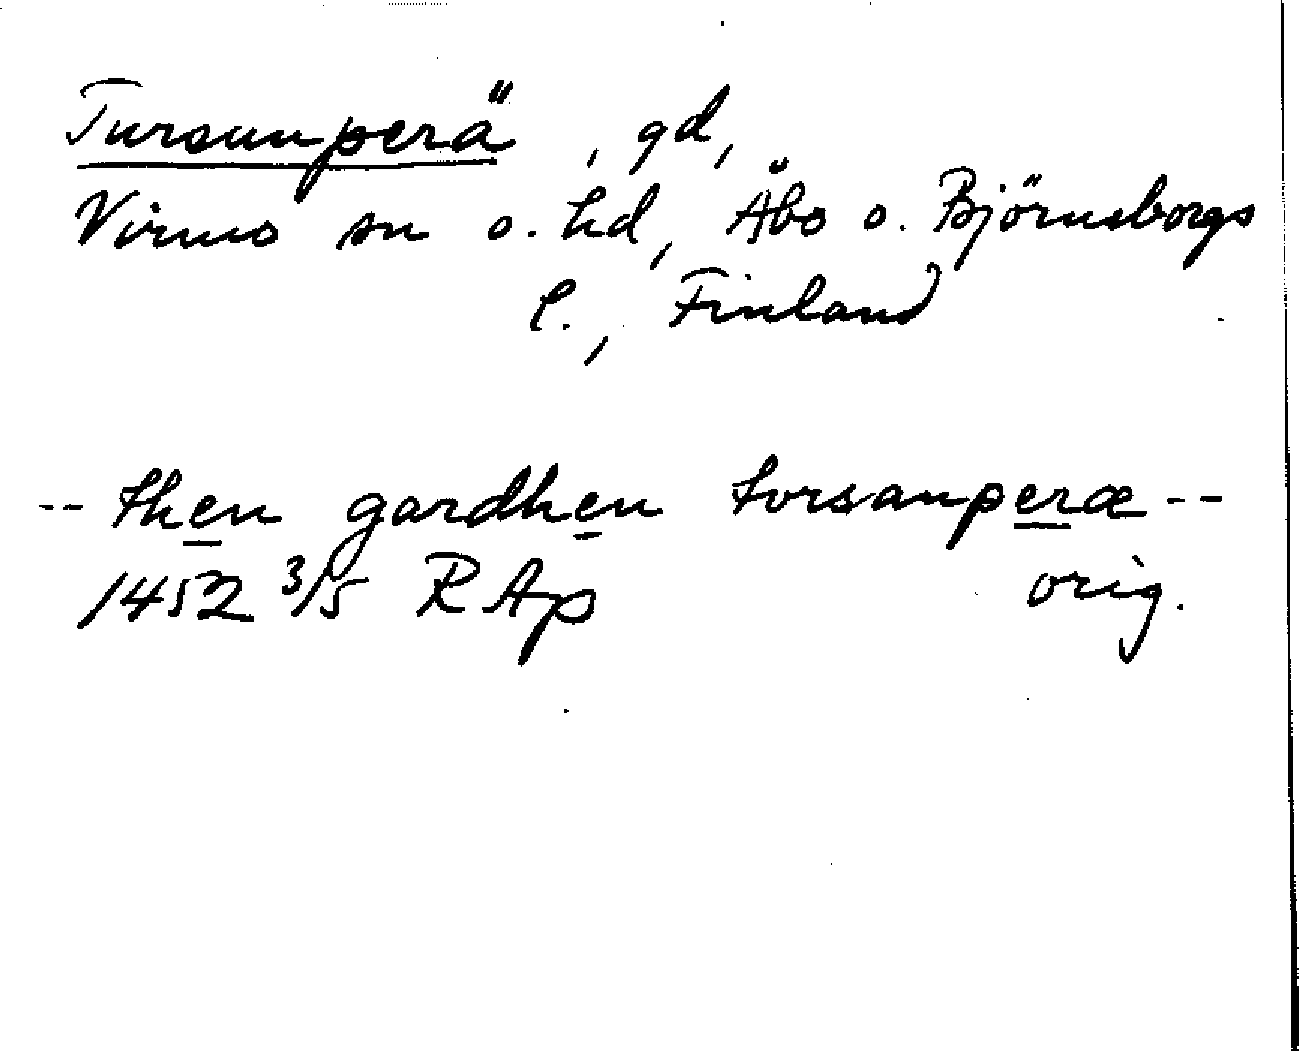 Tursunperä, gd,
Virmo sn o. hd, Åbo o. Björneborgs
l., Finland
-- then gardhen torsanperæ --
1452 3/5 RAp orig.